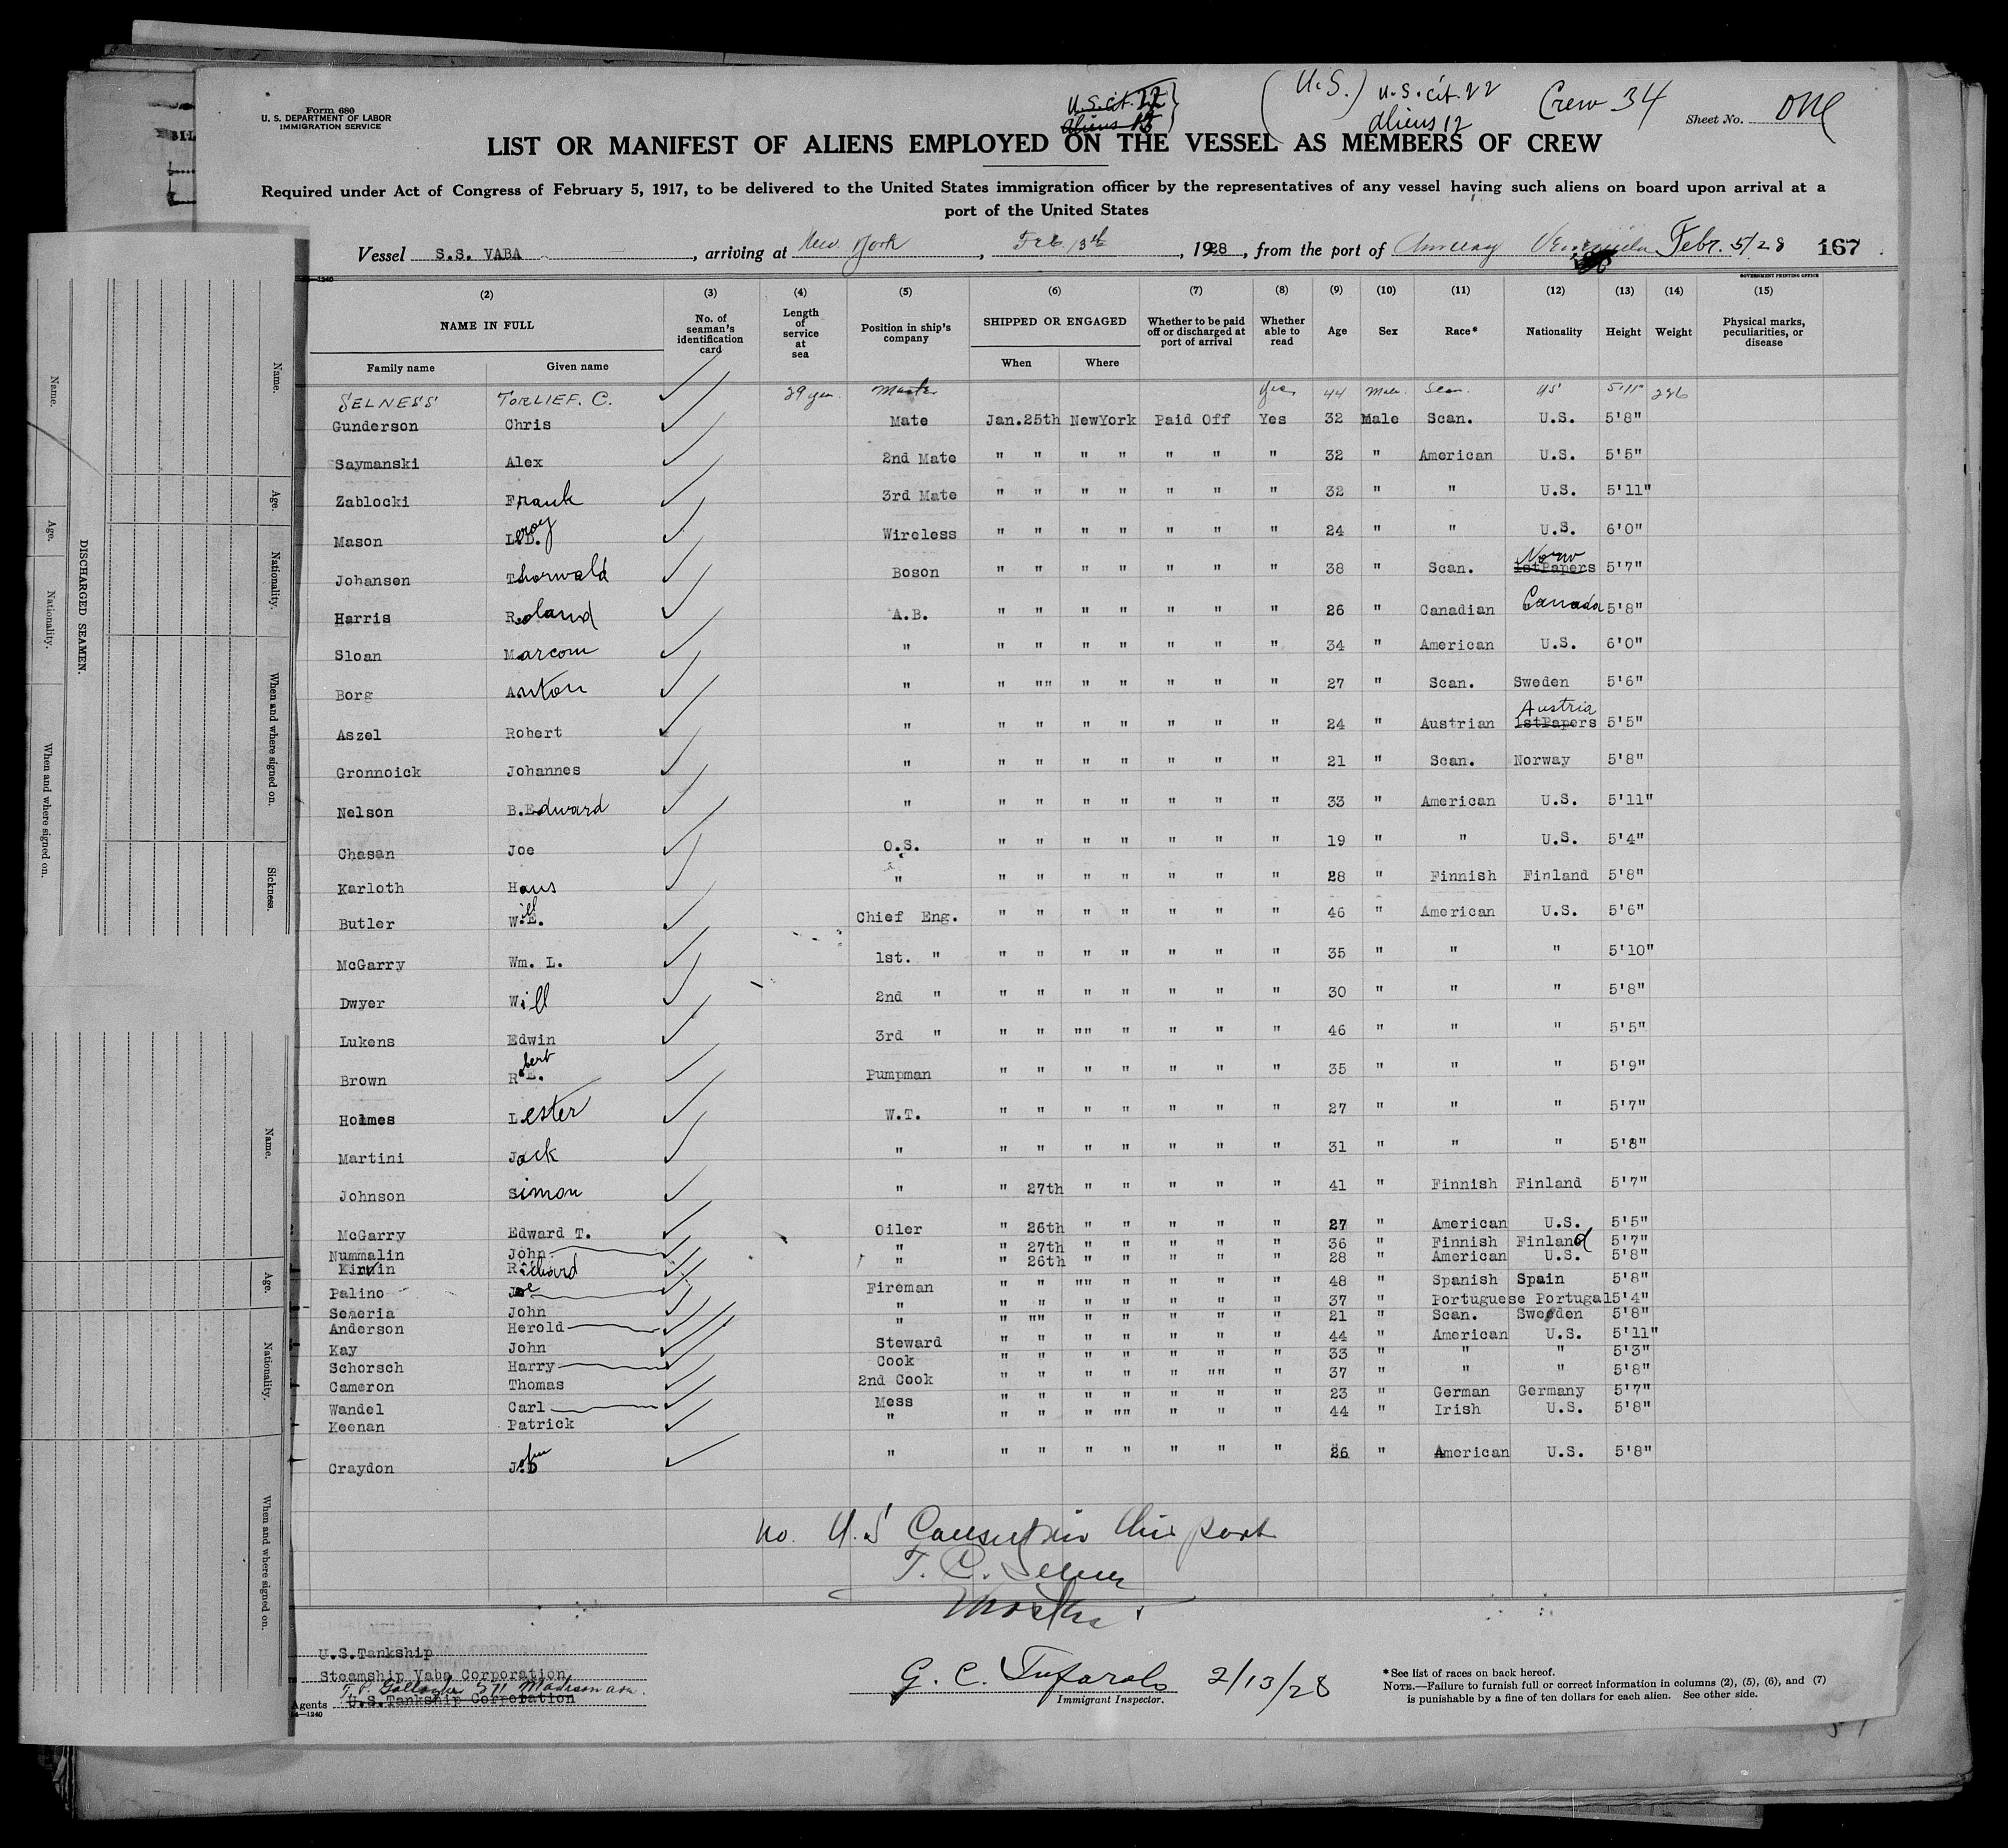 Form 680
U. S. DEPARTMENT OF LABOR
IMMIGRATION SERVICE
U.S. cit. 22
aliens 13
(U.S.) U.S. cit. 22
aliens 12
Crew 34
Sheet No. One
LIST OR MANIFEST OF ALIENS EMPLOYED ON THE VESSEL AS MEMBERS OF CREW
Required under Act of Congress of February 5, 1917, to be delivered to the United States immigration officer by the representatives of any vessel having such aliens on board upon arrival at a
port of the United States
Vessel S.S. VABA, arriving at New York, Feb 13th, 1928, from the port of Venezuela Febr. 5/28 167
GOVERNMENT PRINTING OFFICE
(2) (3) (4) (5) (6) (7) (8) (9) (10) (11) (12) (13) (14) (15)
NAME IN FULL No. of seaman's identification card Length of service at sea Position in ship's company SHIPPED OR ENGAGED Whether to be paid off or discharged at port of arrival Whether able to read Age Sex Race* Nationality Height Weight Physical marks, peculiarities, or disease
Family name Given name When Where
SELNESS TORLIEF. C. 29 yrs Master Yes 44 Male Scan. US 5'11" 226
Gunderson Chris Mate Jan.25th NewYork Paid Off Yes 32 Male Scan. U.S. 5'8"
Saymanski Alex 2nd Mate " " " " " " " 32 " American U.S. 5'5"
Zablocki Frank 3rd Mate " " " " " " " 32 " " U.S. 5'11"
Mason Leroy Wireless " " " " " " " 24 " " U.S. 6'0"
Johansen Thorwald Boson " " " " " " " 38 " Scan. 1stPapers Norw 5'7"
Harris Roland A.B. " " " " " " " 26 " Canadian Canada 5'8"
Sloan Marcom " " " " " " " " 34 " American U.S. 6'0"
Borg Anton " " "" " " " " " 27 " Scan. Sweden 5'6"
Aszel Robert " " " " " " " " 24 " Austrian 1stPapers Austria 5'5"
Gronnoick Johannes " " " " " " " " 21 " Scan. Norway 5'8"
Nelson B.Edward " " " " " " " " 33 " American U.S. 5'11"
Chasan Joe O.S. " " " " " " " 19 " " U.S. 5'4"
Karloth Hans " " " " " " " " 28 " Finnish Finland 5'8"
Butler Will E. Chief Eng. " " " " " " " 46 " American U.S. 5'6"
McGarry Wm. L. 1st. " " " " " " " " 35 " " " 5'10"
Dwyer Will 2nd " " " " " " " " 30 " " " 5'8"
Lukens Edwin 3rd " " " "" " " " " 46 " " " 5'5"
Brown Robert E. Pumpman " " " " " " " 35 " " " 5'9"
Holmes Lester W.T. " " " " " " " 27 " " " 5'7"
Martini Jack " " " " " " " " 31 " " " 5'8"
Johnson Simon " " 27th " " " " " 41 " Finnish Finland 5'7"
McGarry Edward T. Oiler " 26th " " " " " 27 " American U.S. 5'5"
Nummalin John " " 27th " " " " " 36 " Finnish Finland 5'7"
Kirwin Richard " " 26th " " " " " 28 " American U.S. 5'8"
Palino Joe Fireman " " "" " " " " 48 " Spanish Spain 5'8"
Seaeria John " " " " " " " " 37 " Portuguese Portugal 5'4"
Anderson Herold " " "" " " " " " 21 " Scan. Sweden 5'8"
Kay John Steward " " " " " " " 44 " American U.S. 5'11"
Schorsch Harry Cook " " " " " " " 33 " " " 5'3"
Cameron Thomas 2nd Cook " " " " " "" " 37 " " " 5'8"
Wandel Carl Mess " " " " " " " 23 " German Germany 5'7"
Keenan Patrick " " " " "" " " " 44 " Irish U.S. 5'8"
Craydon John " " " " " " " " 26 " American U.S. 5'8"
no. U.S Consul in this port
T. C. Selness
Master
U.S.Tankship
Steamship Vaba Corporation
T. P. Gallagher 511 Madison ave.
Agents U.S.Tankship Corporation
14—1240
2/13/28
Immigrant Inspector.
*See list of races on back hereof.
NOTE.—Failure to furnish full or correct information in columns (2), (5), (6), and (7)
is punishable by a fine of ten dollars for each alien. See other side.
DISCHARGED SEAMEN.
Name. Age. Nationality. When and where signed on. Sickness.
Name. Age. Nationality. When and where signed on.
Name. Age. Nationality. When and where signed on.